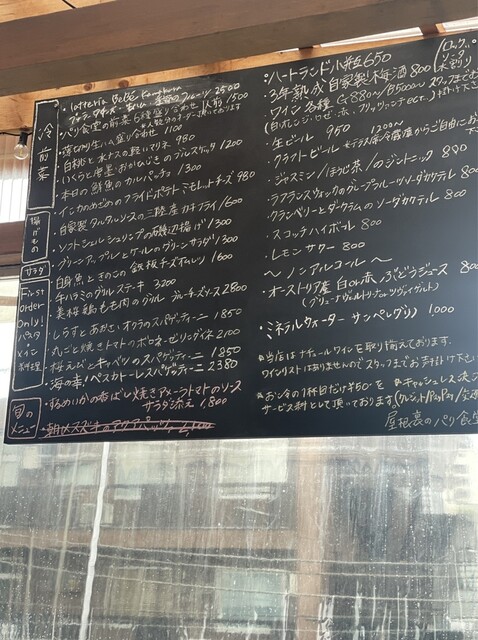 冷前菜
latteria Bebè Kamakura
ブッラータチーズ・生ハム・季節のフルーツ 2500
・パリ食堂の前菜6種盛り合わせ 1人前 1500
※人数分のオーダー頂いております
・薄切り生ハム盛り合わせ 1100
・白桃と水ナスの軽いマリネ 980
・いくらと唐墨・おかひじきのブルスケッタ 1200
・本日の鮮魚のカルパッチョ 1300
揚げもの
・インカのめざめのフライドポテト ミモレットチーズ 980
・自家製タルタルソースの三陸産カキフライ 1600
・ソフトシェルシュリンプの磯辺揚げ 1300
サラダ
・グリーンアップルとケールのグリーンサラダ 1300
First order Only! パスタ メイン 料理
・白身魚ときのこの鉄板チーズオムレツ 1600
・牛ハラミのグリルステーキ 3200
・美桜鶏もも肉のグリル ブルーチーズソース 2800
・しらすとあおさとオクラのスパゲッティーニ 1850
・丸ごと焼きトマトのボロネーゼリングイネ 2100
・桜えびとキャベツのスパゲッティーニ 1850
・海の幸ペスカトーレスパゲッティーニ 2380
旬のメニュー
・するめいかの香ばし焼き アメーラトマトのソース
サラダ添え 1,800
・ハートランド小瓶 650
・3年熟成自家製梅酒 800
ロック
ソーダ
水割り
・ワイン各種 G880〜/B5000〜
・生ビール 950
・クラフトビール 1200〜
・ジャスミン/ほうじ茶/のジントニック 880
・ラフランスウォッカのグレープフルーツソーダカクテル 880
・クランベリーとダークラムのソーダカクテル 880
・スコッチハイボール 800
・レモンサワー 800
〜ノンアルコール〜
・オーストリア産 白or赤 ぶどうジュース 800
(グリューナヴェルトリーナ or ツヴァイゲルト)
・ミネラルウォーター サンペレグリノ 1.000
※当店はナチュールワインを取り揃えております。
ワインリストはありませんのでスタッフまでお声掛け下さい
※お会の1杯目だけ¥50-を
サービス料として頂いております
※キャッシュレス決
(クレジット/PayPay/
屋根裏のパリ食堂